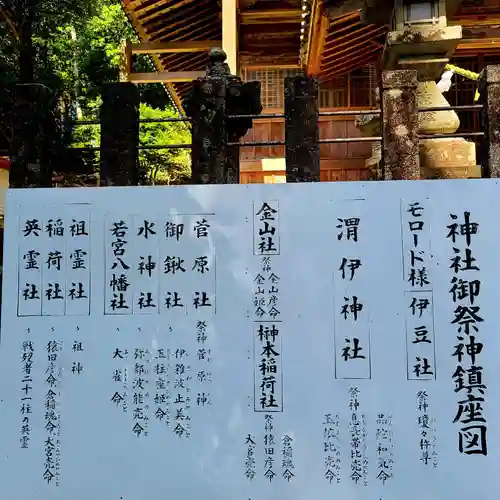 神社御祭神鎮座図
モロード様
伊豆社
祭神 瓊々杵尊
渭伊神社
祭神
品陀和気命
息長帯比売命
玉依比売命
金山社
祭神
金山彦命
金山姫命
榊本稲荷社
祭神
倉稲魂命
猿田彦命
大宮売命
菅原社
祭神 菅原神
御鍬社
伊雑波止美命
玉柱姫命
水神社
弥都波能売命
若宮八幡社
大雀命
祖霊社
祖神
稲荷社
猿田彦命 倉稲魂命 大宮売命
英霊社
戦歿者二十一柱の英霊